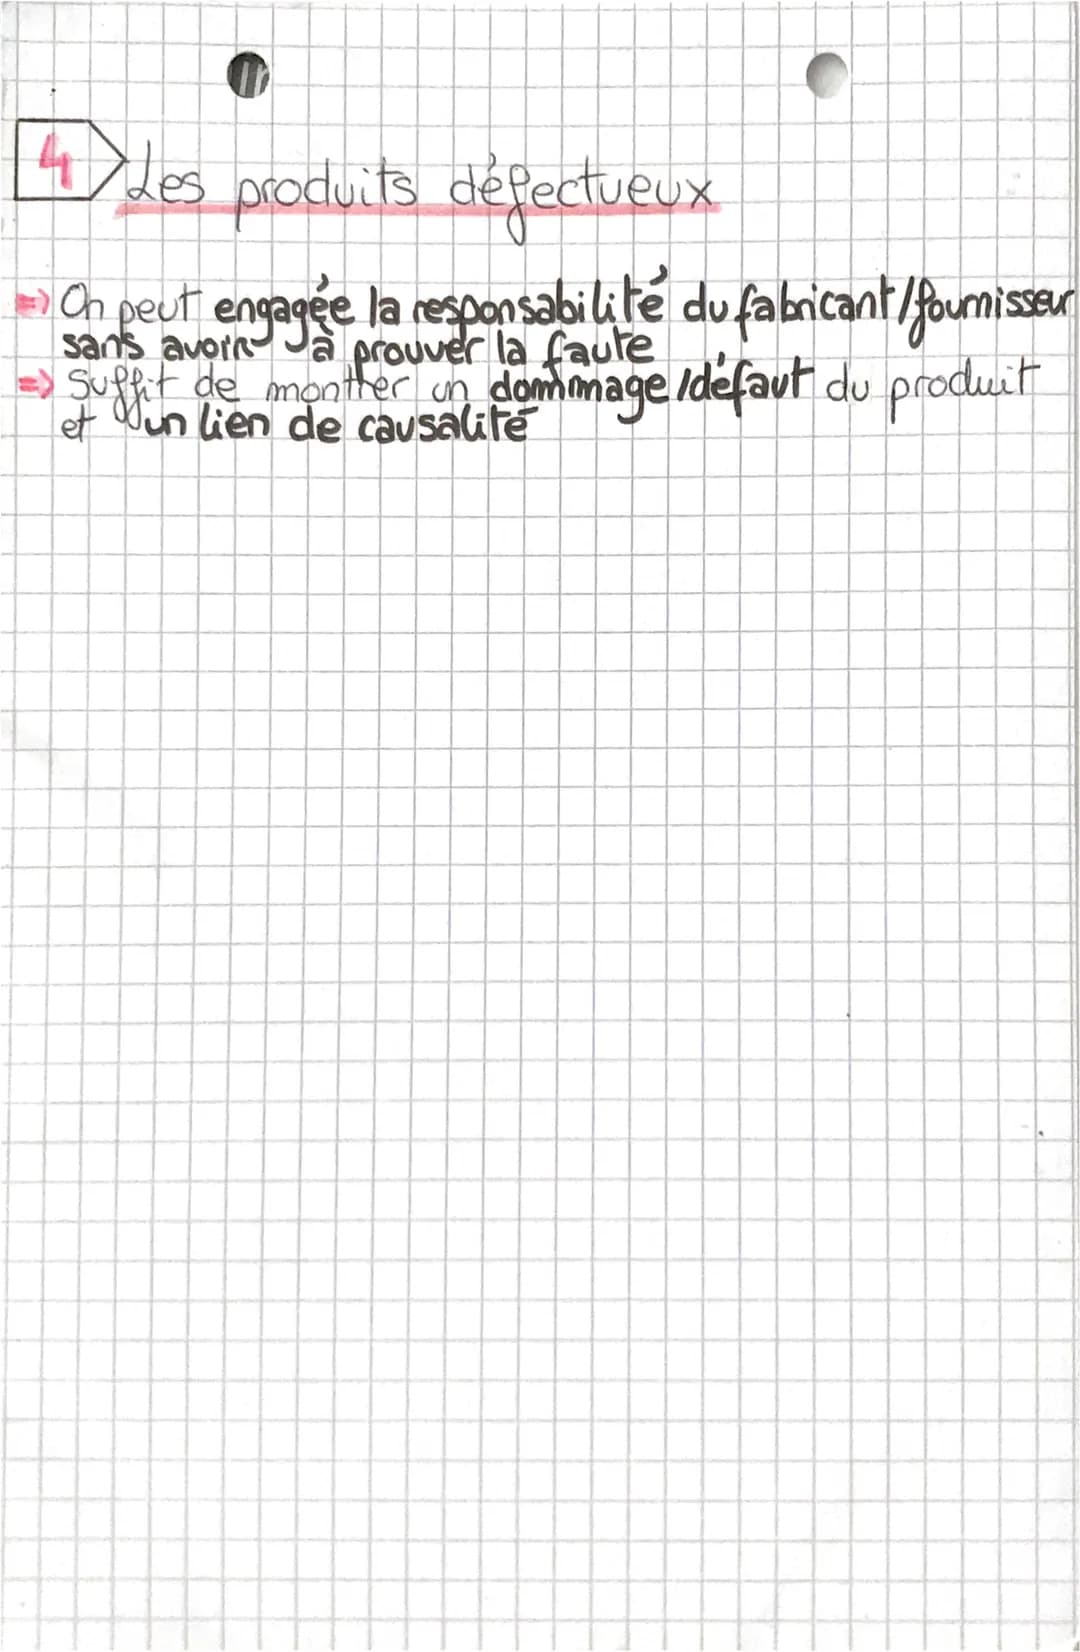 4 Les produits défectueux
=> On peut engagée la responsabilité du fabricant/fournisseur
sans avoir à prouver la faute
=> Suffit de montrer un dommage/défaut du produit
et un lien de causalité